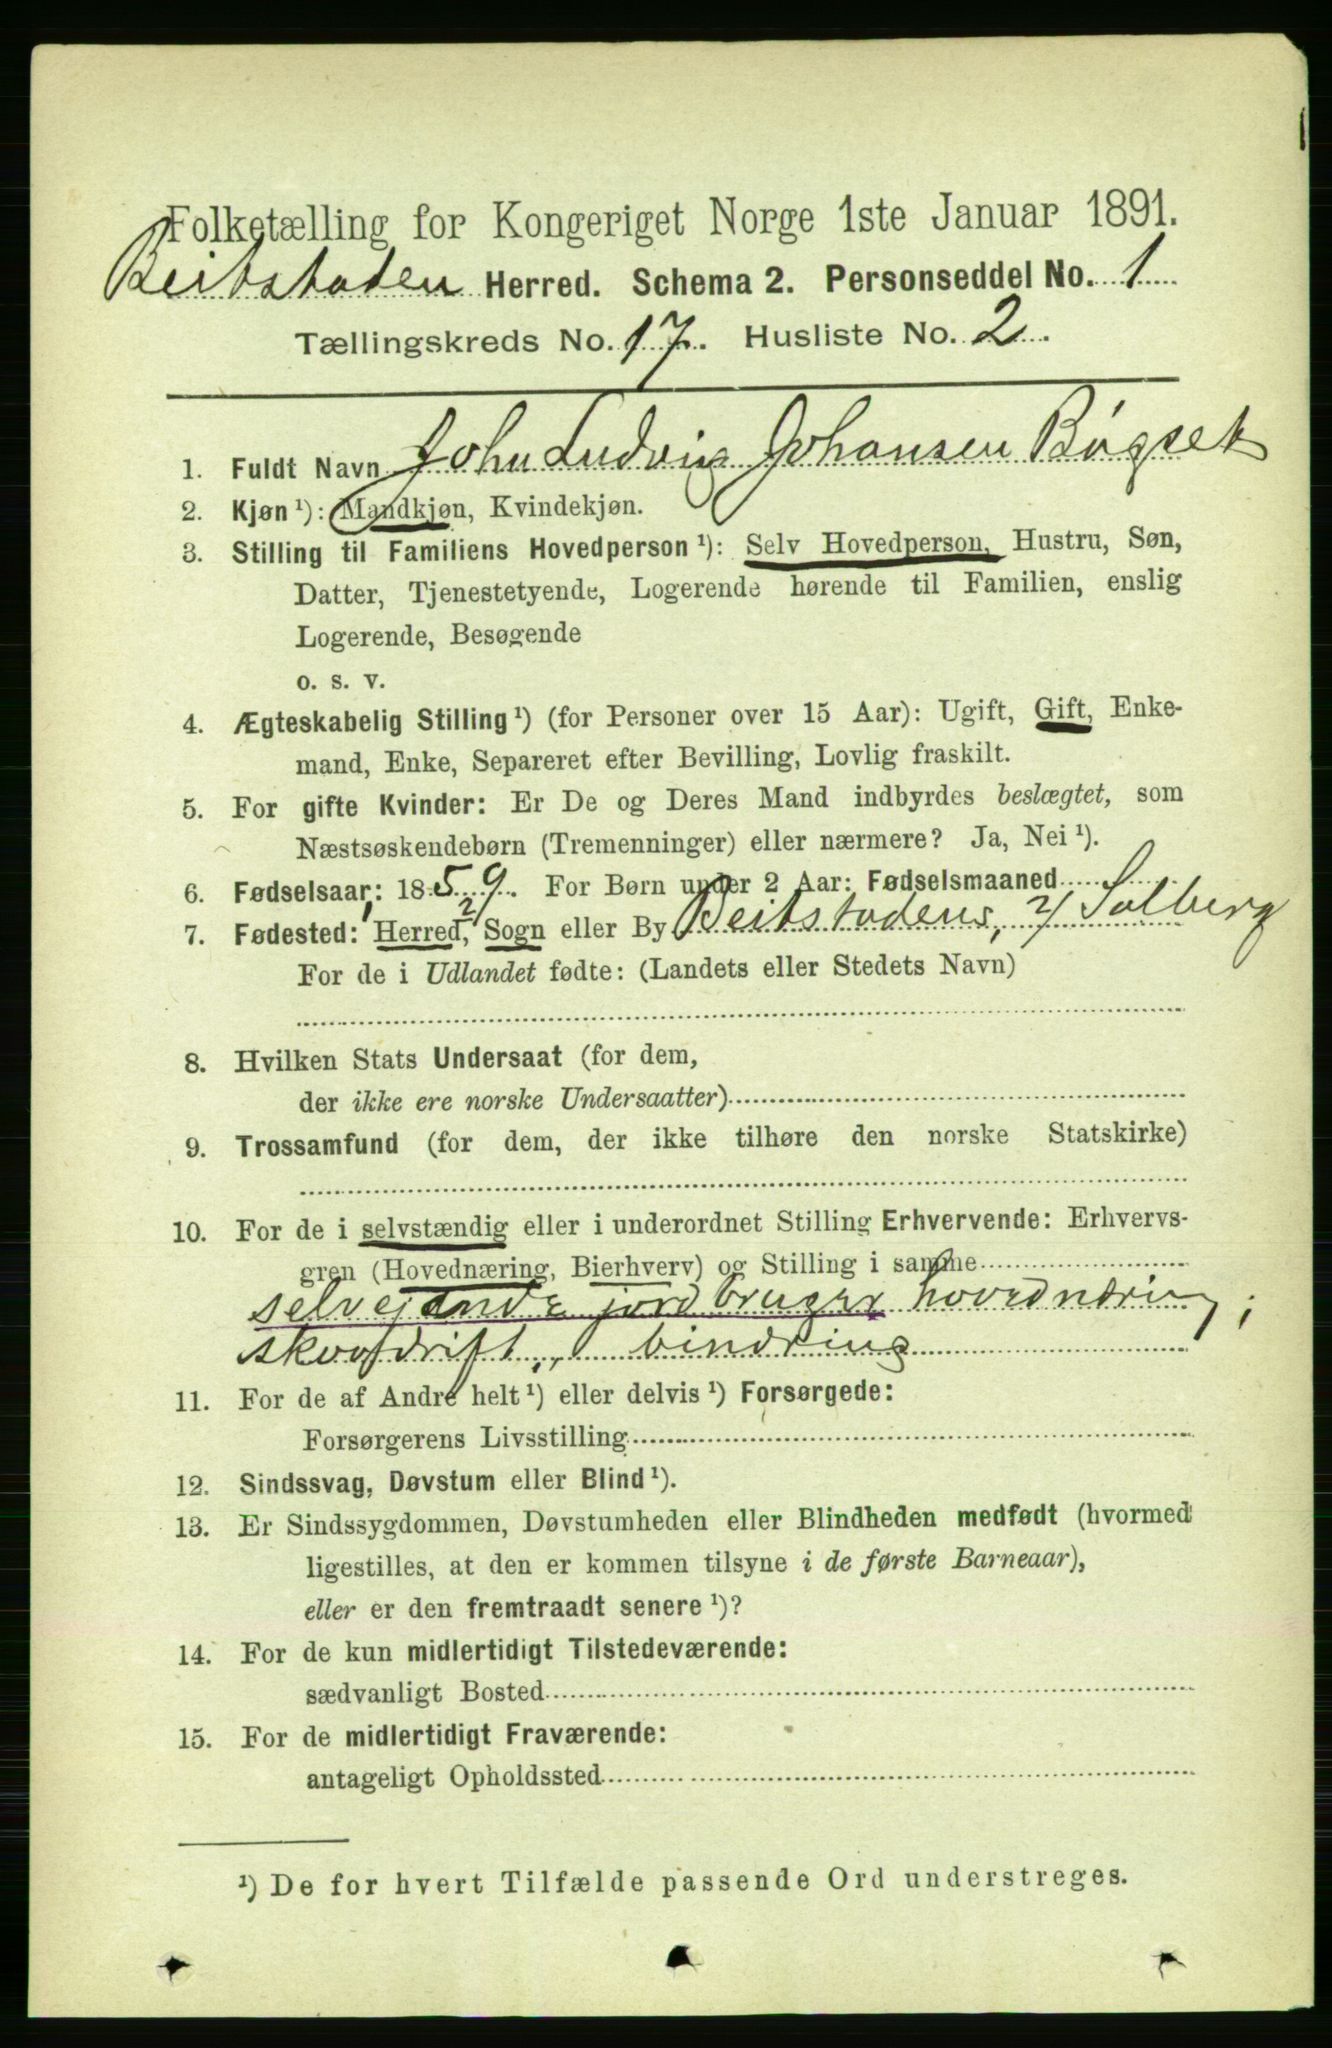 Folketælling for Kongeriget Norge 1ste Januar 1891.
Beitstaden Herred. Schema 2. Personseddel No. 1
Tællingskreds No. 17. Husliste No. 2.
1. Fuldt Navn John Ludvig Johansen Bøgset
2. Kjøn ¹): Mandkjøn, Kvindekjøn.
3. Stilling til Familiens Hovedperson ¹): Selv Hovedperson, Hustru, Søn,
Datter, Tjenestetyende, Logerende hørende til Familien, enslig
Logerende, Besøgende
o. s. v.
4. Ægteskabelig Stilling ¹) (for Personer over 15 Aar): Ugift, Gift, Enke-
mand, Enke, Separeret efter Bevilling, Lovlig fraskilt.
5. For gifte Kvinder: Er De og Deres Mand indbyrdes beslægtet, som
Næstsøskendebørn (Tremenninger) eller nærmere? Ja, Nei ¹).
6. Fødselsaar: 1859. For Børn under 2 Aar: Fødselsmaaned
7. Fødested: 1/ Herred, 2/ Sogn eller By Beitstadens, 2/ Solberg
For de i Udlandet fødte: (Landets eller Stedets Navn)
8. Hvilken Stats Undersaat (for dem,
der ikke ere norske Undersaatter)
9. Trossamfund (for dem, der ikke tilhøre den norske Statskirke)
10. For de i selvstændig eller i underordnet Stilling Erhvervende: Erhvervs-
gren (Hovednæring, Bierhverv) og Stilling i samme
selvejende jordbruger hovednæring;
skovdrift,, binæring
11. For de af Andre helt ¹) eller delvis ¹) Forsørgede:
Forsørgerens Livsstilling
12. Sindssvag, Døvstum eller Blind ¹).
13. Er Sindssygdommen, Døvstumheden eller Blindheden medfødt (hvormed
ligestilles, at den er kommen tilsyne i de første Barneaar),
eller er den fremtraadt senere ¹)?
14. For de kun midlertidigt Tilstedeværende:
sædvanligt Bosted
15. For de midlertidigt Fraværende:
antageligt Opholdssted
¹) De for hvert Tilfælde passende Ord understreges.